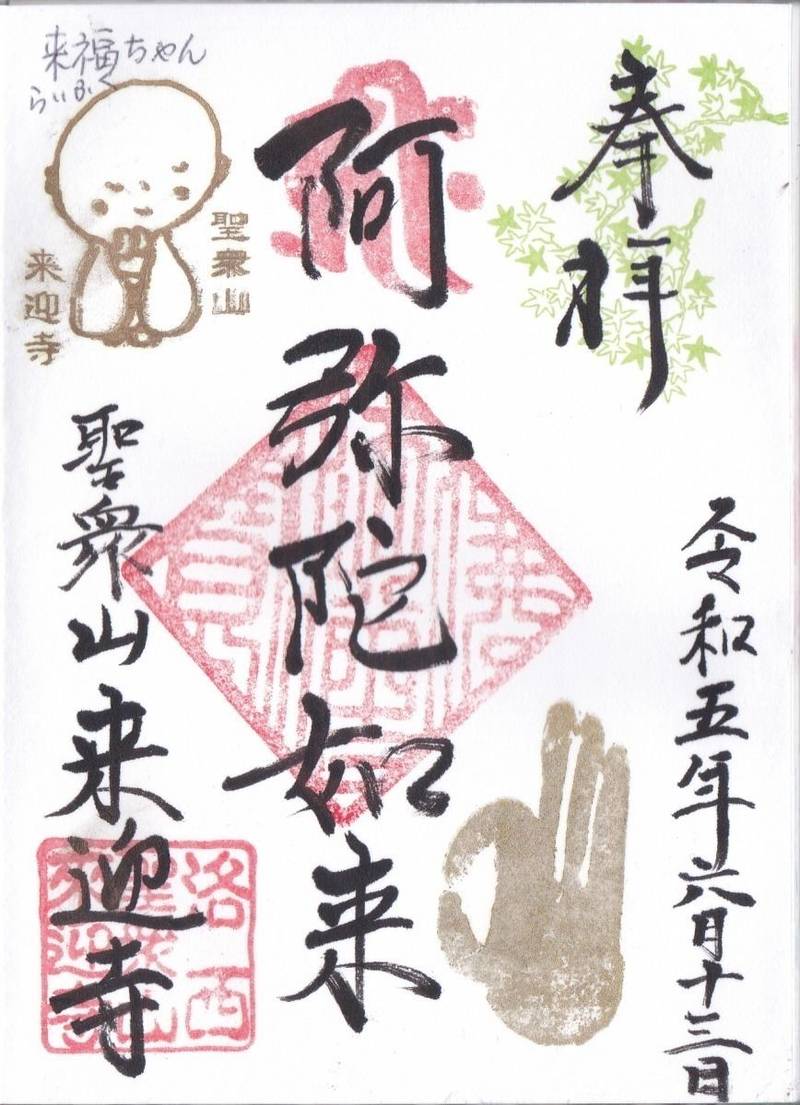 奉拝
令和五年六月十三日
阿弥陀如来
聖衆山来迎寺
来福ちゃん
らいふく
聖衆山
来迎寺
洛西
聖衆山
来迎寺